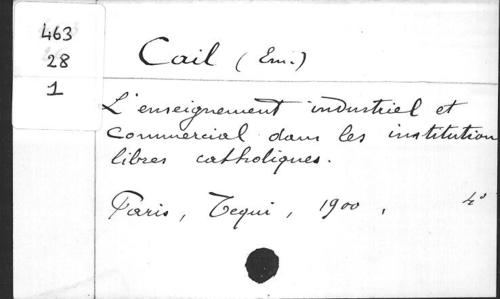 463
28
1
Cail (Em.)
L'enseignement industriel et
commercial dans les institution
libres catholiques.
Paris, Tequi, 1900, 4°